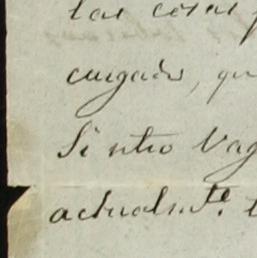 las cosas
cuigadr, qu
Si ntro Vag
actualmte.